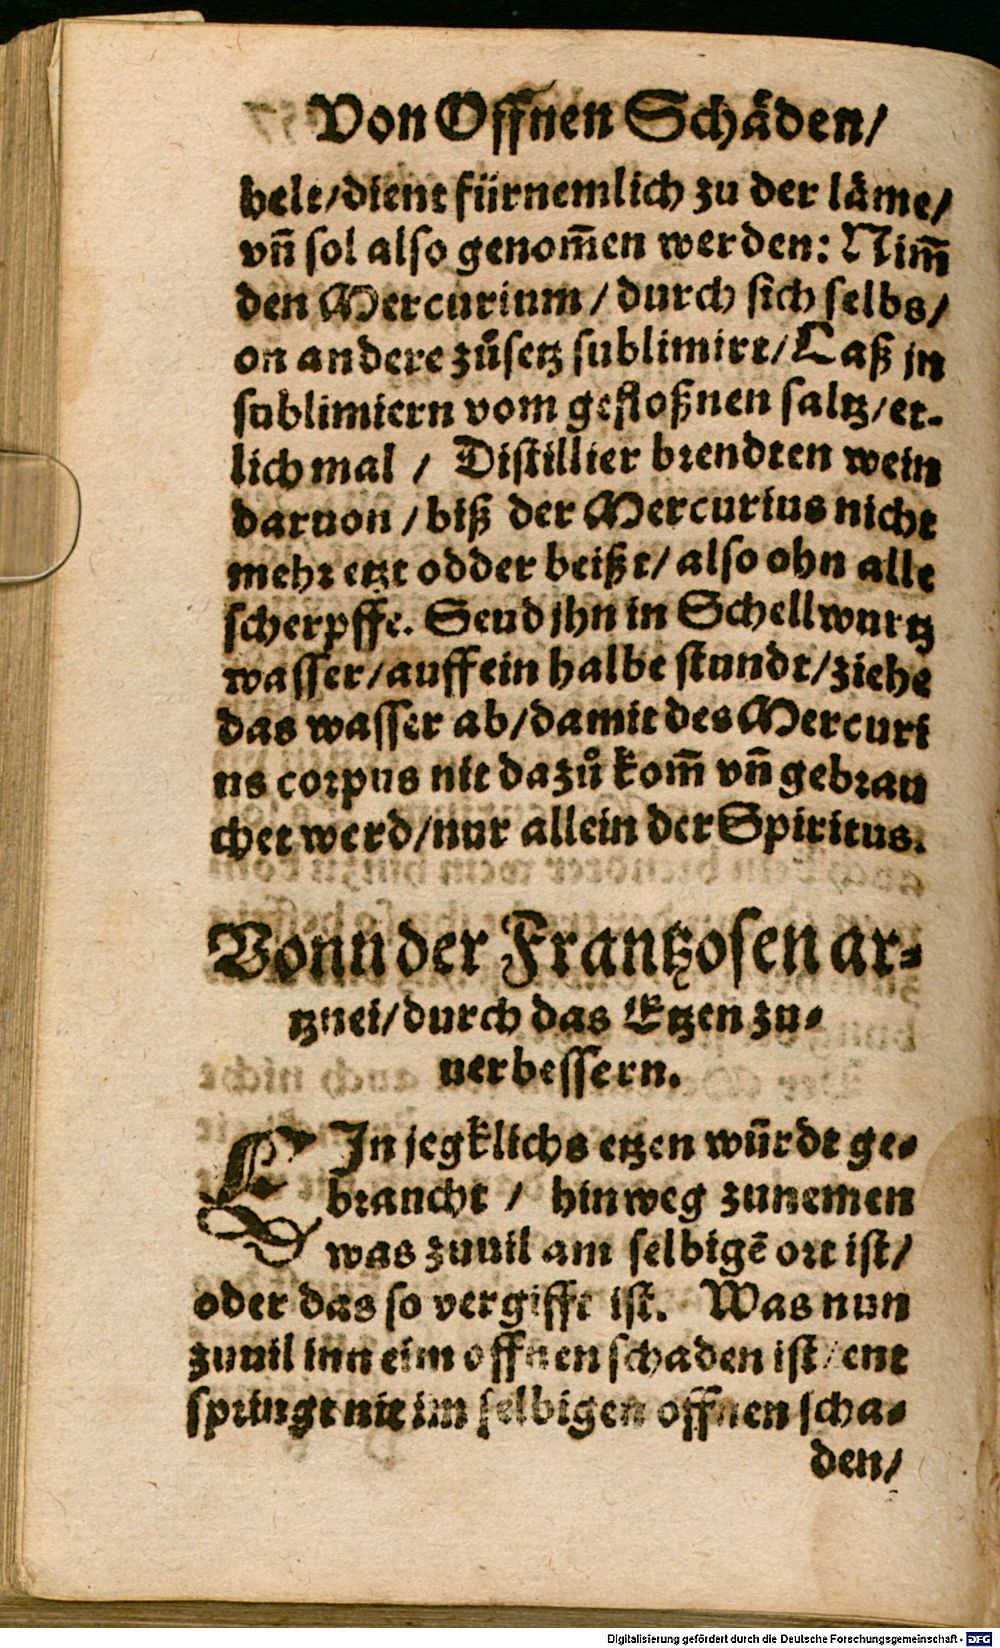 Von Offnen Schäden/
helt/dient fürnemlich zu der läme/
vn̄ sol also genom̄en werden: Nim̄
den Mercurium / durch sich selbs/
on andere zůsetz sublimirt/Laß jn
sublimiern vom gestoßnen saltz/et-
lich mal / Distillier brendten wein
daruon / biß der Mercurius nicht
mehr etzt odder beißt/ also ohn alle
scherpffe. Seud jhn in Schellwurtz
wasser/auff ein halbe stundt/ziehe
das wasser ab/damit des Mercuri
us corpus nit dazů kom̄ vn̄ gebrau
chet werd/nur allein der Spiritus.
Vonn der Frantzosen ar-
tznei/durch das Etzen zu-
uerbessern.
EIn jegklichs etzen wūrdt ge-
braucht / hinweg zunemen
was zuuil am selbigē ort ist/
oder das so vergifft ist. Was nun
zuuil inn eim offnen schaden ist/ent
springt nit im selbigen offnen scha-
den/
Digitalisierung gefördert durch die Deutsche Forschungsgemeinschaft - DFG